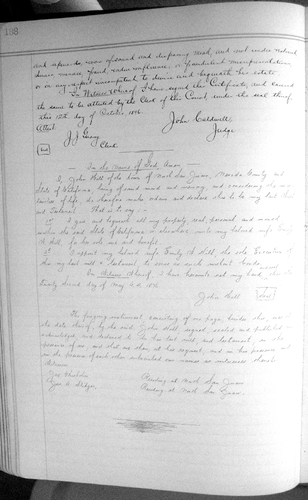 186
and upwards, was of sound and disposing mind, and not under restraint
under menace, fraud, undue influence, or fraudulent misrepresentation,
or in any respect incompetent to devise and bequeath his estate.
In Witness Whereof I have signed this Certificate, and caused
the same to be attested by the Clerk of this Court under the seal thereof,
this 18th day of October
Attest
John Caldwell
Judge
Clerk
Seal
In the Name of God, Amen
I, John Hill of the town of North San Juan, Nevada County and
State of California, being of sound mind and memory, and considering the
of life, do therefore make and declare this to be my last Will
and Testament. That is to say
1st I give and bequeath all my property real, personal and mixed
within the said State of California or elsewhere unto my beloved wife Emily
A. Hill, for her sole use and benefit.
2d I appoint my beloved wife Emily A. Hill, the sole Executrix of
this my last will & Testament, to serve as such without bonds.
In Witness Whereof, I have hereunto set my hand, this the
Twenty Second day of May A.D.
John Hill
Seal
The foregoing instrument, consisting of one page, besides this, was at
the date thereof, by the said John Hill signed, sealed and published
acknowledged and declared to be his last will, and testament, in the
presence of us, and that we, at his request, and in his presence and
in the presence of each other subscribed our names as witnesses thereto
Witnesses
Residing at North San Juan
Residing at North San Juan